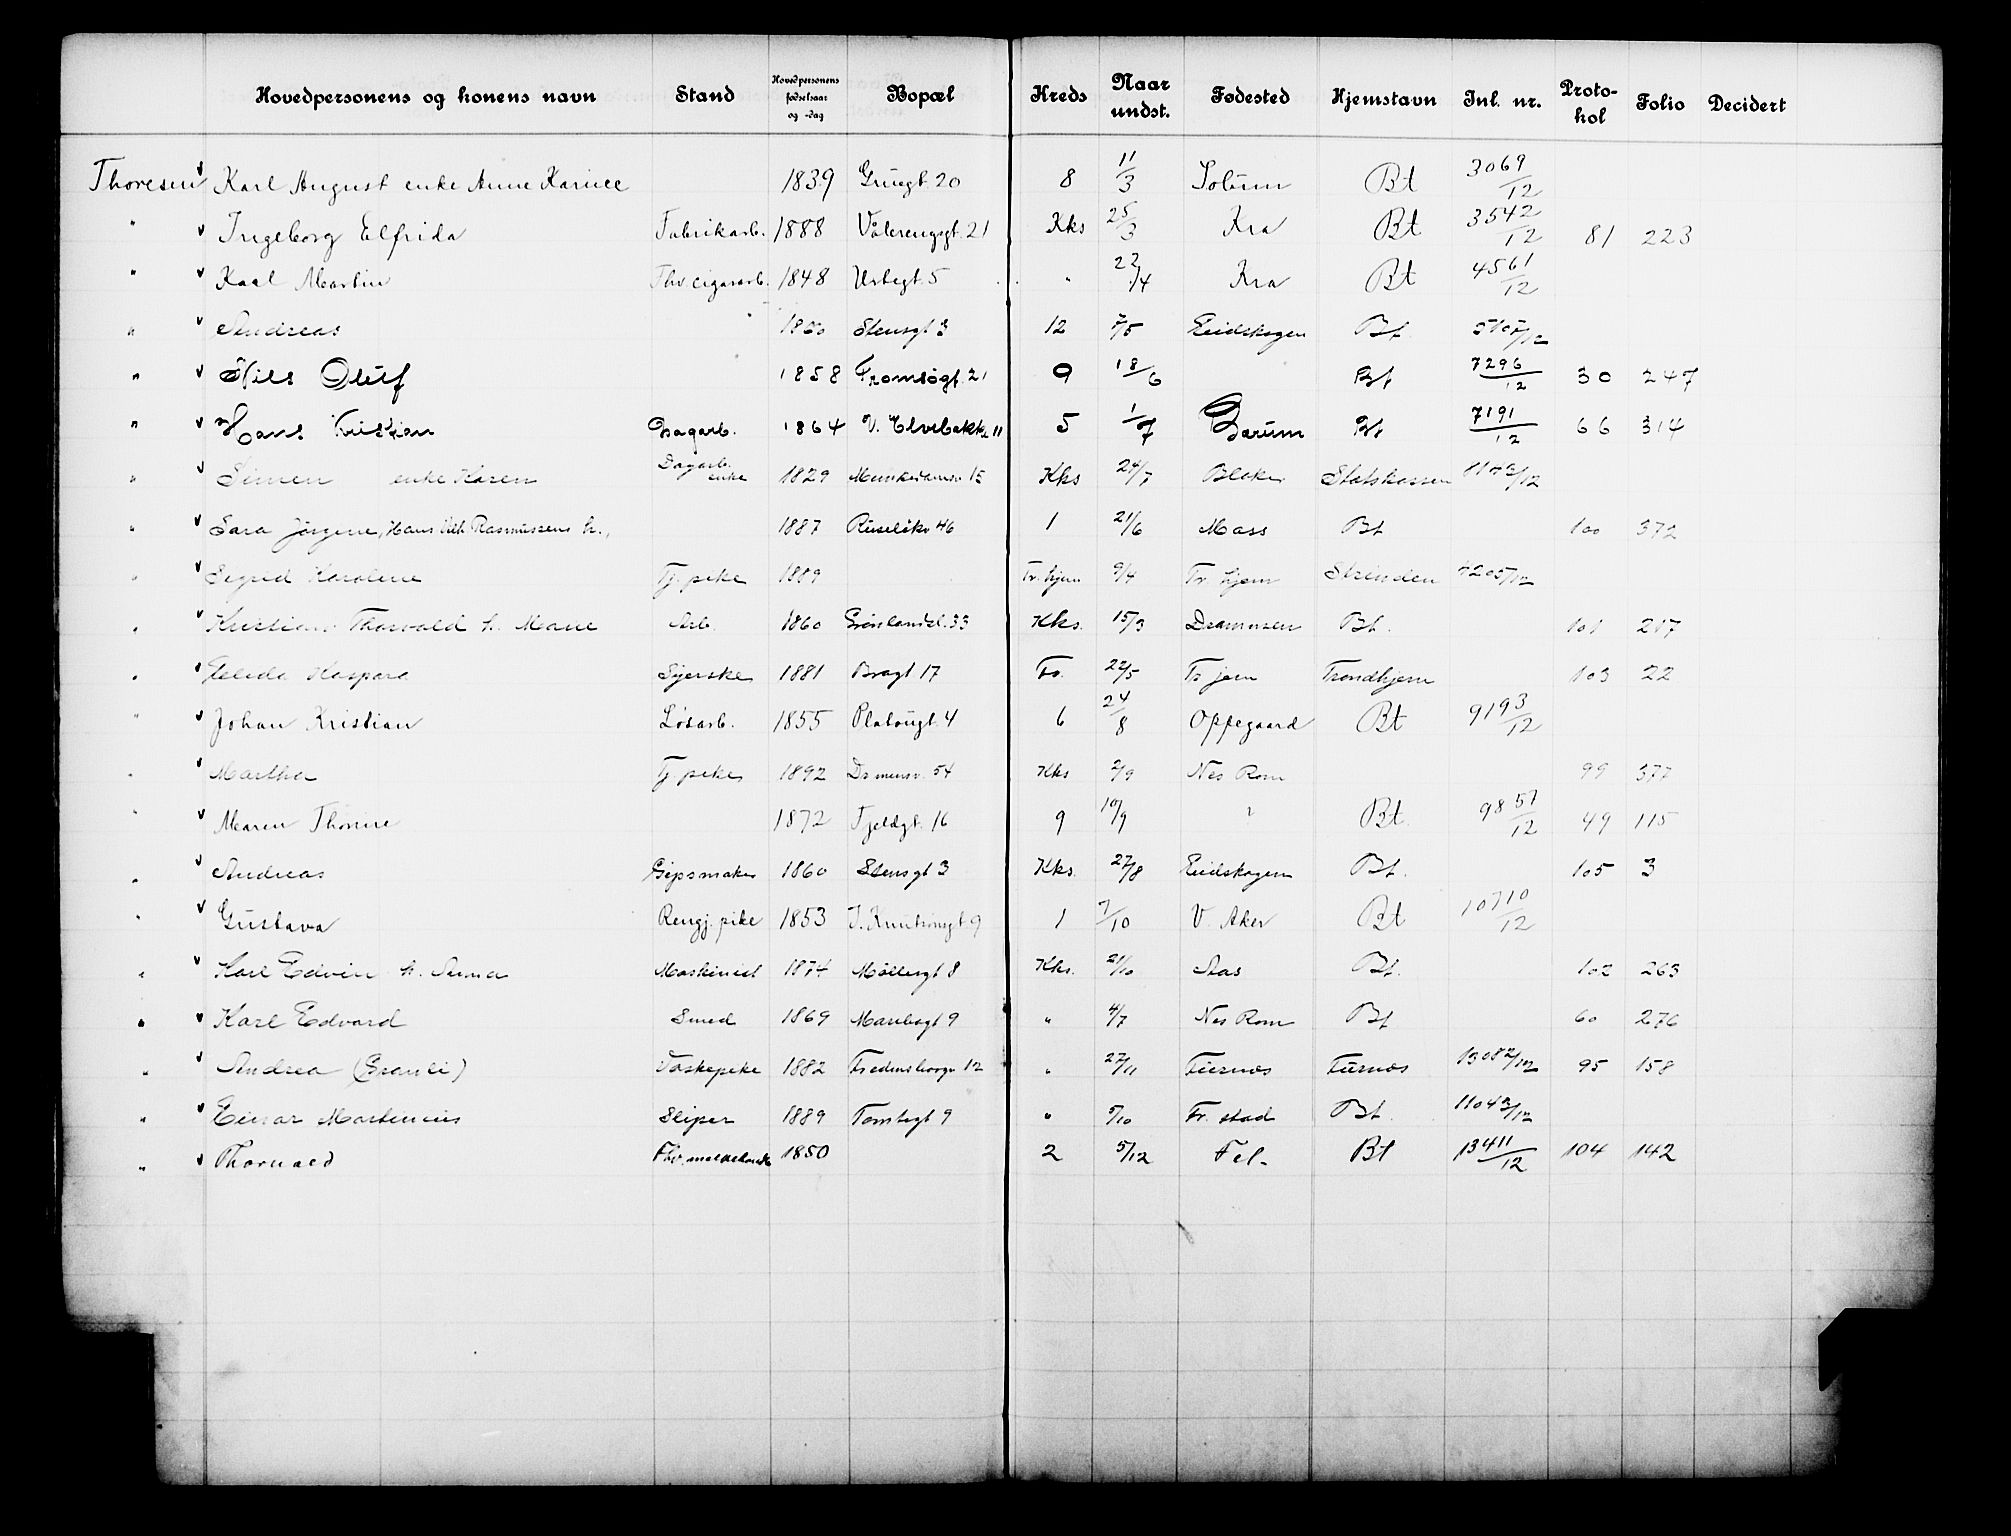 Hovedpersonens og konens navn Stand Hovedpersonens fødselsaar og -dag Bopæl Kreds Naar undst. Fødested Hjemstavn Inl. nr. Protokol Folio Decidert
Thoresen Karl August enke Anne Karine 1839 Grüngt. 20 8 11/3 Solum Bt 3069/12
" Ingeborg Elfrida Fabrikarb. 1888 Vålerengsgt. 21 Kks 25/3 Kra Bt 3542/12 81 223
" Karl Martin Fhv. cigararb. 1848 Urtegt. 5 " 22/4 Kra Bt 4561/12
" Andreas 1860 Stensgt 3 12 7/5 Eidskogen Bt. 5107/12
" Nils Oluf 1858 Tromsøgt. 21 9 18/6 Bt 7296/12 30 247
" Hans Kristian Dagarb. 1864 V. Elvebakke 11 5 1/7 Bærum Bt 7191/12 66 314
" Simen enke Karen Dagarb. enke 1829 Munkedamsv 15 Kks 24/7 Blaker Statskassen
" Sara Jørgine, Hans Vilh Rasmussens h., 1887 Ruseløkv 46 1 21/6 Moss Bt 100 372
" Sigrid Karoline Tj. pike 1889 Tr. hjem 9/4 Tr. hjem Strinden 4205/12
" Kristian Thorvald h. Marie Arb. 1860 Grønlandsl. 33 Kks. 15/3 Drammen Bt. 101 217
" Elida Kaspara Syerske 1881 Bragt. 17 22/5 Tr jem Trondhjem 103 22
" Johan Kristian Løsarb. 1855 Platougt. 4 6 24/8 Oppegaard Bt 9193/12
" Martha Tj pike 1892 Dr mensv. 54 Kks 2/9 Nes Rom 99 377
" Maren Thorine 1872 Fjeldgt. 16 9 10/9 ? Bt. 9851/12 49 115
" Andreas Gipsmaker 1860 Stensgt 3 Kks. 27/8 Eidskogen Bt. 105 3
" Gustava Rengj. pike 1853 J. Knutsonsgt. 9 1 7/10 V. Aker Bt 10710/12
" Karl Edvin h. Anna Maskinist 1874 Møllergt 8 Kks. 21/10 Aas Bt. 102 263
" Karl Edvard Smed 1869 Maribogt 9 " 4/7 Nes Rom Bt 60 276
" Andrea (Granli) Vaskepike 1882 Fredensborgv 12 " 27/11 Furnes Furnes 13082/12 95 158
" Einar Martinius Sliper 1889 Tomtegt 9 " 5/10 Fr. stad Bt. 11043/12
" Thorvald 1850 2 5/12 Fet. Bt 13411/12 104 142